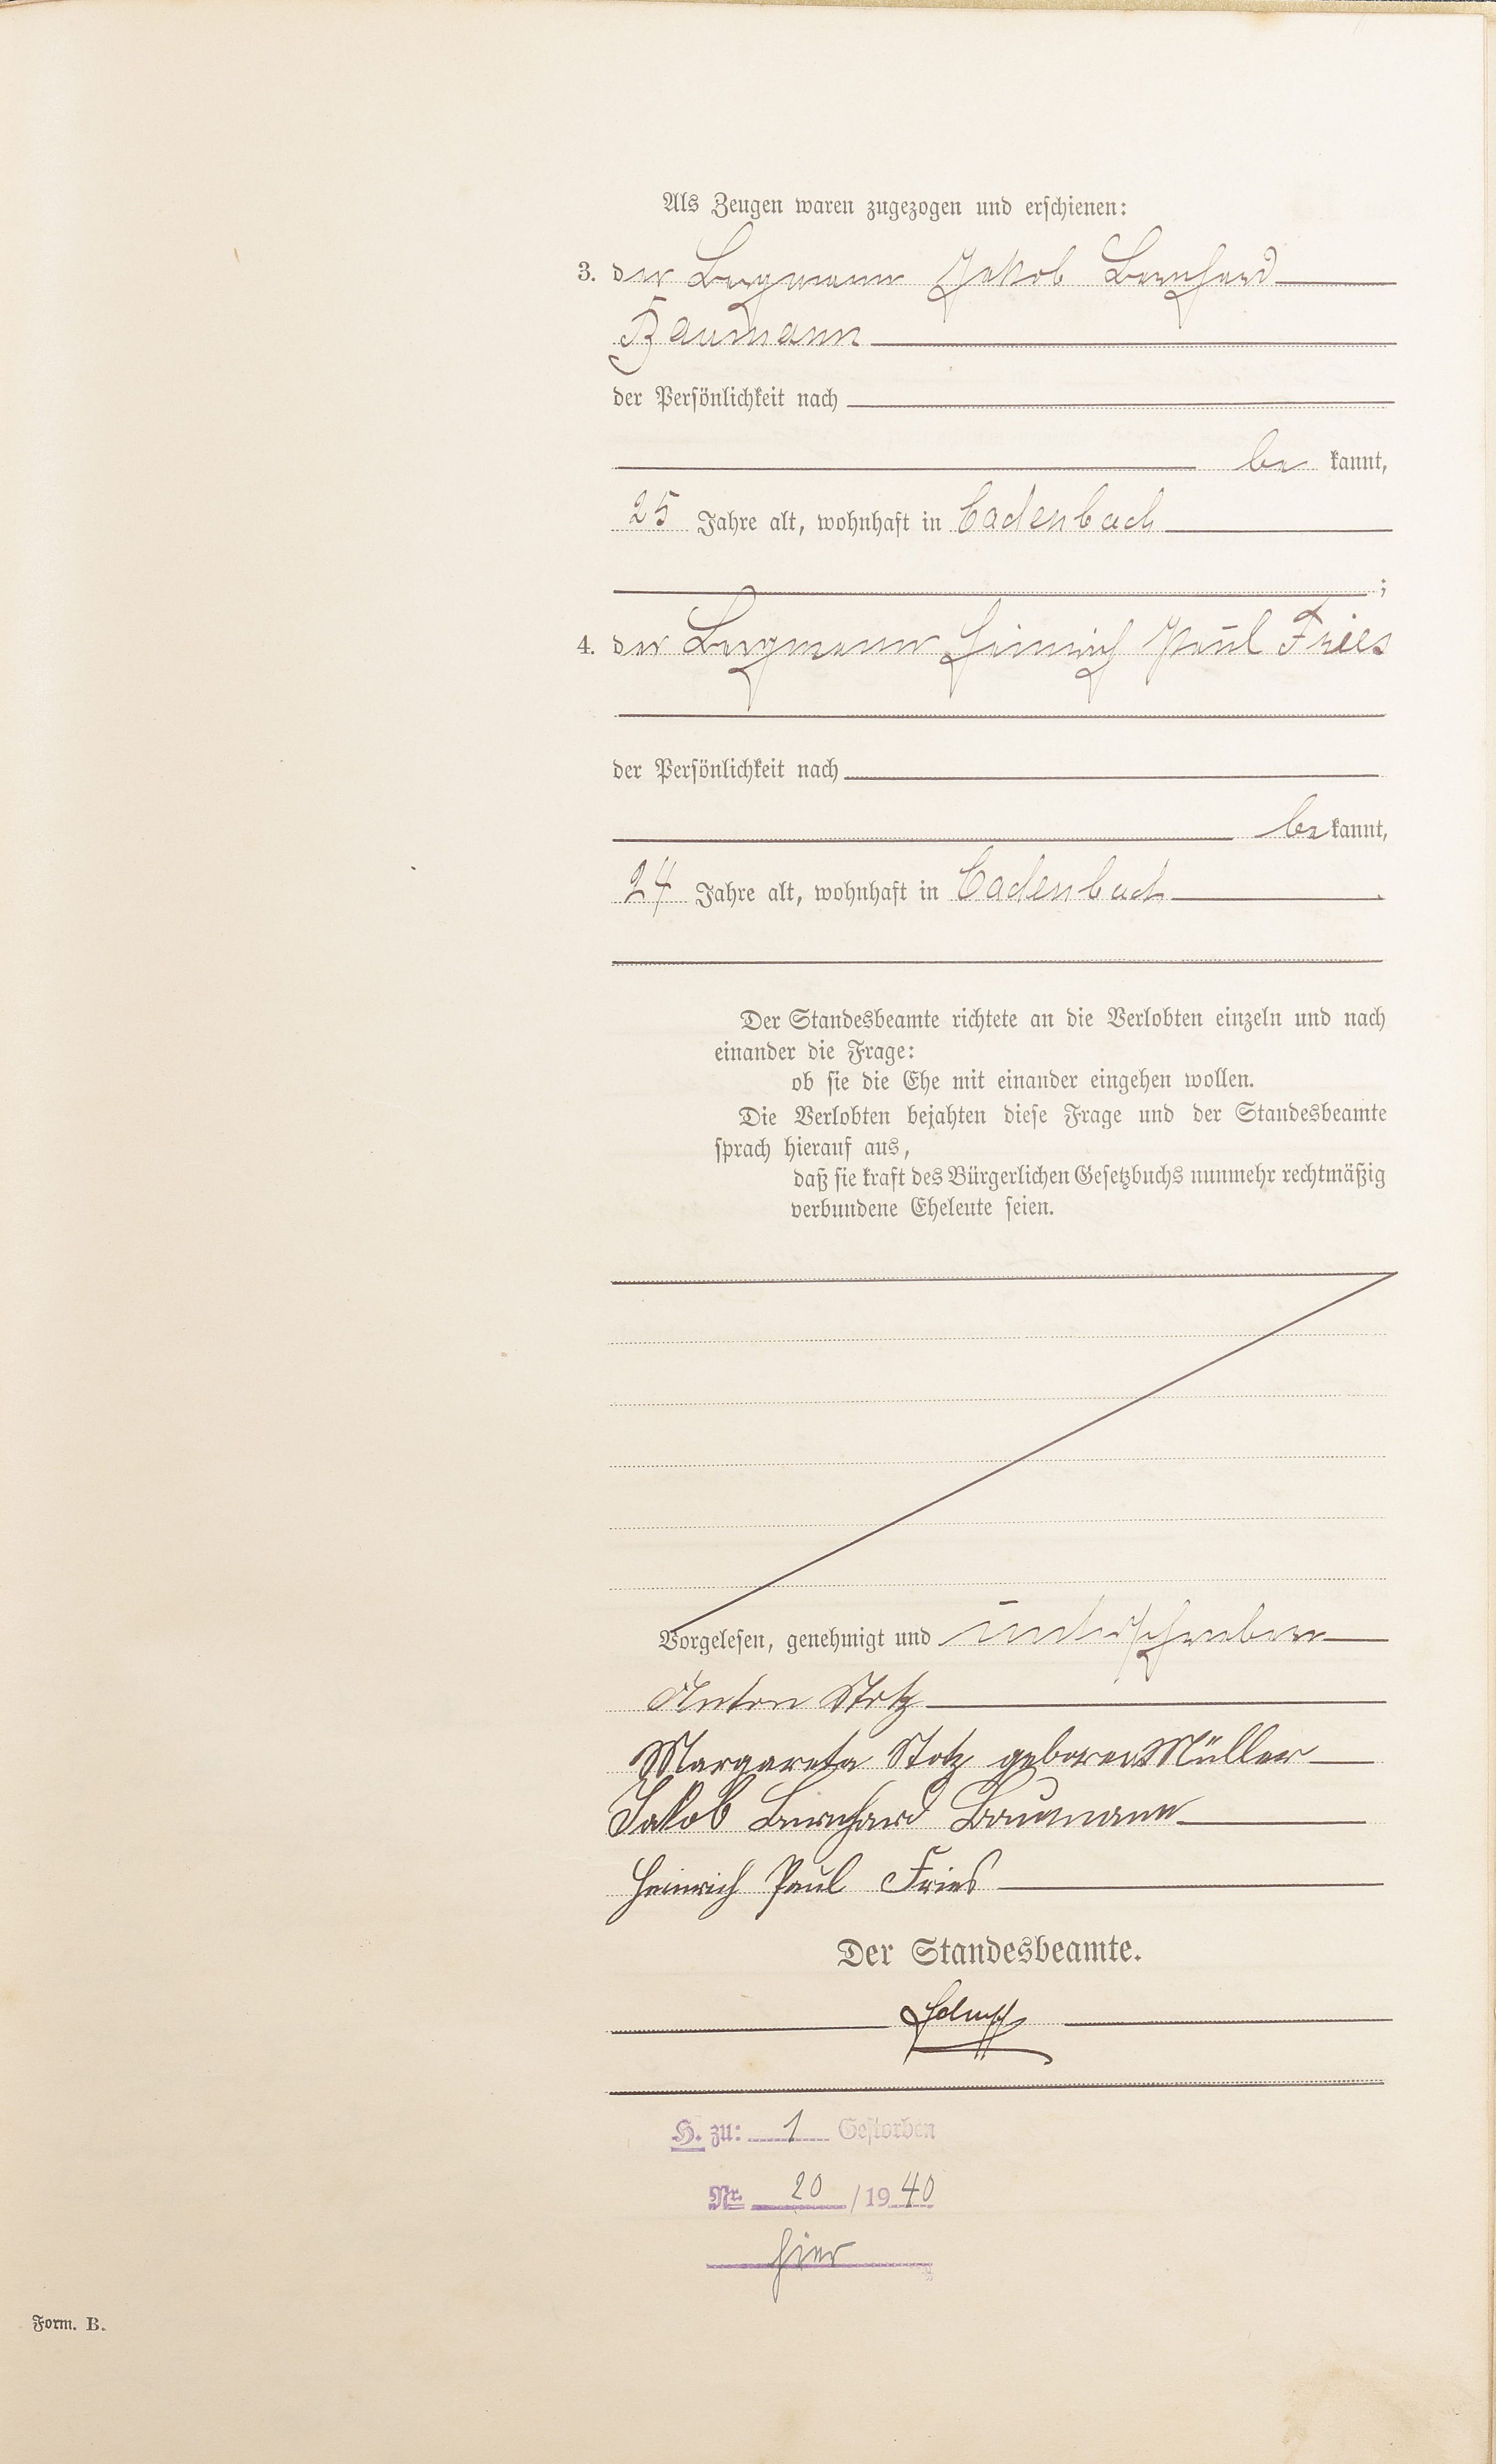 Als Zeugen waren zugezogen und erschienen:
3. der Bergmann Jakob Bernhard
Baumann
der Persönlichkeit nach
be kannt,
25 Jahre alt, wohnhaft in Cadenbach
;
4. der Bergmann Heinrich Paul Fries
der Persönlichkeit nach
be kannt,
24 Jahre alt, wohnhaft in Cadenbach
Der Standesbeamte richtete an die Verlobten einzeln und nach
einander die Frage:
ob sie die Ehe mit einander eingehen wollen.
Die Verlobten bejahten diese Frage und der Standesbeamte
sprach hierauf aus,
daß sie kraft des Bürgerlichen Gesetzbuchs nunmehr rechtmäßig
verbundene Eheleute seien.
Vorgelesen, genehmigt und unterschrieben
Anton Stotz
Margareta Stotz geborene Müller
Jakob Bernhard Baumann
Heinrich Paul Fries
Der Standesbeamte.
H. zu: 1 Gestorben
Nr. 20 /19 40
hier
Form. B.